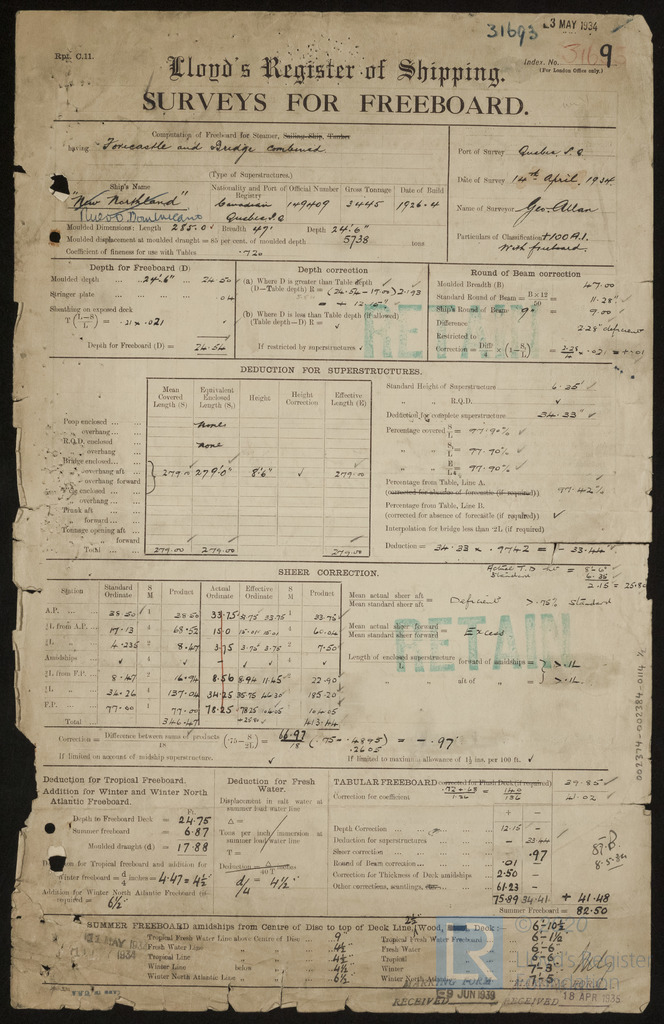 31693
3 MAY 1934
Rpt. C.11.
Index. No. 31693
9
(For London Office only.)
Lloyd's Register of Shipping.
SURVEYS FOR FREEBOARD.
Computation of Freeboard for Steamer, Sailing Ship, Tanker
having Forecastle and Bridge combined
(Type of Superstructures.)
Port of Survey Quebec, P.Q.
Date of Survey 14th April, 1934
Name of Surveyor Geo. Allan
Particulars of Classification +100A.1.
With freeboard.
Ship's Name Nationality and Port of Registry Official Number Gross Tonnage Date of Build
"New Northland" Canadian 149409 3445 1926.4
Nuevo Dominicano Quebec P.Q.
Moulded Dimensions: Length 285.0' Breadth 47' Depth 24'.6"
Moulded displacement at moulded draught = 85 per cent. of moulded depth 5738 tons
Coefficient of fineness for use with Tables .720
Depth for Freeboard (D)
Moulded depth ... 24'.6" ... 24.50
Stringer plate ... .04
Sheathing on exposed deck
T (L-S/L) = .21 x .021
Depth for Freeboard (D) = 24.54
Depth correction
(a) Where D is greater than Table depth
(D—Table depth) R = (24.54 - 19.00) 2.193
= + 12.15"
(b) Where D is less than Table depth (if allowed)
(Table depth—D) R =
If restricted by superstructures
Round of Beam correction
Moulded Breadth (B) 47.00
Standard Round of Beam = B×12/50 = 11.28"
Ship's Round of Beam 9" = 9.00
Difference 2.28" deficient
Restricted to
Correction = Diff/4 × (1-S/L) = 2.28/4 × .02 = +.01
RETAIN
DEDUCTION FOR SUPERSTRUCTURES.
Mean Covered Length (S) Equivalent Enclosed Length (S₁) Height Height Correction Effective Length (E)
Poop enclosed ... None
" overhang ...
R.Q.D. enclosed None
" overhang
Bridge enclosed...
" overhang aft 279.00 279'.0" 8'.6" 279.00
" overhang forward
F'cle enclosed ...
" overhang ...
Trunk aft ...
" forward ...
Tonnage opening aft
" " forward
Total ... 279.00 279.00 279.00
Standard Height of Superstructure 6.35'
" " R.Q.D.
Deduction for complete superstructure 34.33"
Percentage covered S/L = 97.90%
" " S₁/L = 97.90%
" " E/L = 97.90%
Percentage from Table, Line A.
(corrected for absence of forecastle (if required)) 97.42%
Percentage from Table, Line B.
(corrected for absence of forecastle (if required))
Interpolation for bridge less than ·2L (if required)
Deduction = 34.33 x .9742 = - 33.44
SHEER CORRECTION.
Station Standard Ordinate S M Product Actual Ordinate Effective Ordinate S M Product
A.P. ... 38.50 1 38.50 33.75 33.75 1 33.75
¼L from A.P. ... 17.13 4 68.52 15.0 15.01 4 60.04
½L " 4.235 2 8.47 3.75 3.75 2 7.50
Amidships ...
½L from F.P. ... 8.47 2 16.94 8.56 11.45 2 22.90
¼L " 34.26 4 137.04 34.25 46.30 4 185.20
F.P. ... 77.00 1 77.00 78.25 104.05 1 104.05
Total ... 346.47 413.44
Actual T.D. ht = 8.6"
Standard 6.35
2.15 = 25.80
Mean actual sheer aft
Mean standard sheer aft = Deficient > .75% Standard
Mean actual sheer forward
Mean standard sheer forward = Excess
Length of enclosed superstructure forward of amidships = > .1L
" " aft of " = > .1L
RETAIN
Correction = Difference between sums of products/18 (·75 - S/2L) = 66.97/18 (.75 - .4895) = - .97"
.2605
If limited on account of midship superstructure.
If limited to maximum allowance of 1½ ins. per 100 ft.
002374-002384-0114 1/2
Deduction for Tropical Freeboard.
Addition for Winter and Winter North Atlantic Freeboard.
Ft.
Depth to Freeboard Deck = 24.75
Summer freeboard = 6.87
Moulded draught (d) = 17.88
Deduction for Tropical freeboard and addition for
Winter freeboard = d/4 inches = 4.47 = 4½
Addition for Winter North Atlantic Freeboard (if required) = 6½
Deduction for Fresh Water.
Displacement in salt water at summer load water line
Δ =
Tons per inch immersion at summer load water line
T =
Deduction = Δ/40T
d/4 = 4½"
TABULAR FREEBOARD corrected for Flush Deck (if required) 39.85
Correction for coefficient .72+.68/1.36 = 1.40/1.36 41.02
+ -
Depth Correction ... 12.15 -
Deduction for superstructures ... - 33.44
Sheer correction ... - .97
Round of Beam correction ... .01
Correction for Thickness of Deck amidships 2.50 -
Other corrections, scantlings, 61.23 -
75.89 34.41 + 41.48
Summer Freeboard = 82.50
8.5.34
SUMMER FREEBOARD amidships from Centre of Disc to top of Deck Line, 2½" Wood, Deck:— 6'-10½"
Tropical Fresh Water Line above Centre of Disc ... 9" Tropical Fresh Water Freeboard 6'-1½"
Fresh Water Line " " ... 4½" Fresh Water " 6'-6"
Tropical Line " " ... 4½" Tropical " 6'-6"
Winter Line below " ... 4½" Winter " 7'-3"
Winter North Atlantic Line " " ... 6½" Winter North Atlantic " 7'-5"
MAY 1934
MARKING FORM
RECEIVED 9 JUN 1939
MARKING FORM
RECEIVED 18 APR 1935
© 2020
LR
Lloyd's Register
Foundation